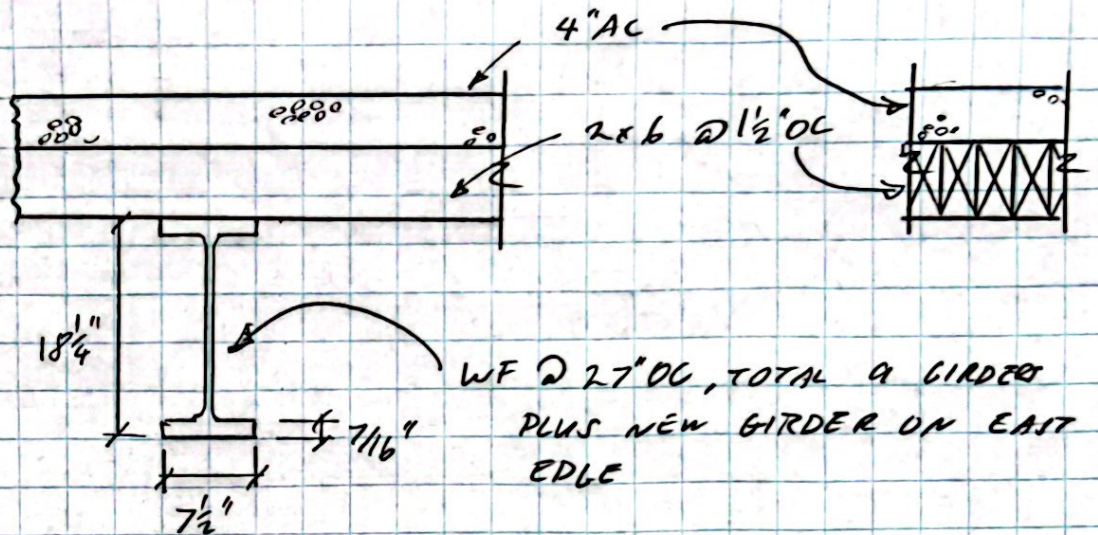 4" AC
2x6 @ 1½" OC
18¼"
WF @ 27" OC, TOTAL 9 GIRDERS
PLUS NEW GIRDER ON EAST
EDGE
7/16"
7½"